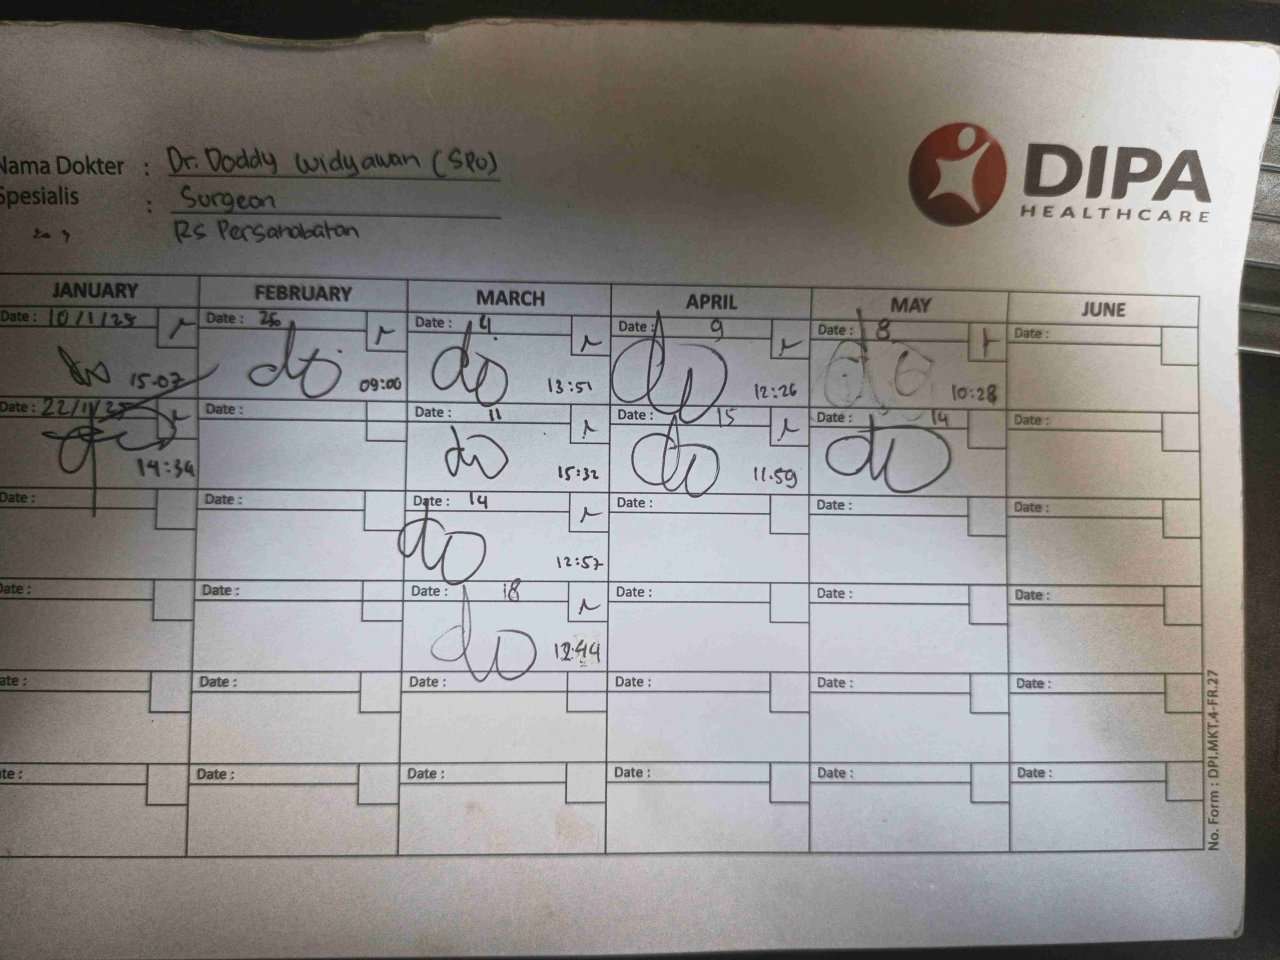 DIPA
HEALTHCARE
Nama Dokter : Dr. Doddy Widyawan (SPO)
Spesialis : Surgeon
RS Persahabatan
JANUARY FEBRUARY MARCH APRIL MAY JUNE
Date : 10/1/25 Date : Date : 4 Date : 9 Date : 8 Date :
15.07 09:00 13:51 12:26 10:28
Date : Date : Date : 11 Date : 15 Date : 14 Date :
14:34 15:32 11.59
Date : Date : Date : 14 Date : Date : Date :
12:57
Date : Date : Date : 18 Date : Date : Date :
12:44
ate : Date : Date : Date : Date : Date :
te : Date : Date : Date : Date : Date :
No. Form : DPI.MKT.4-FR.27